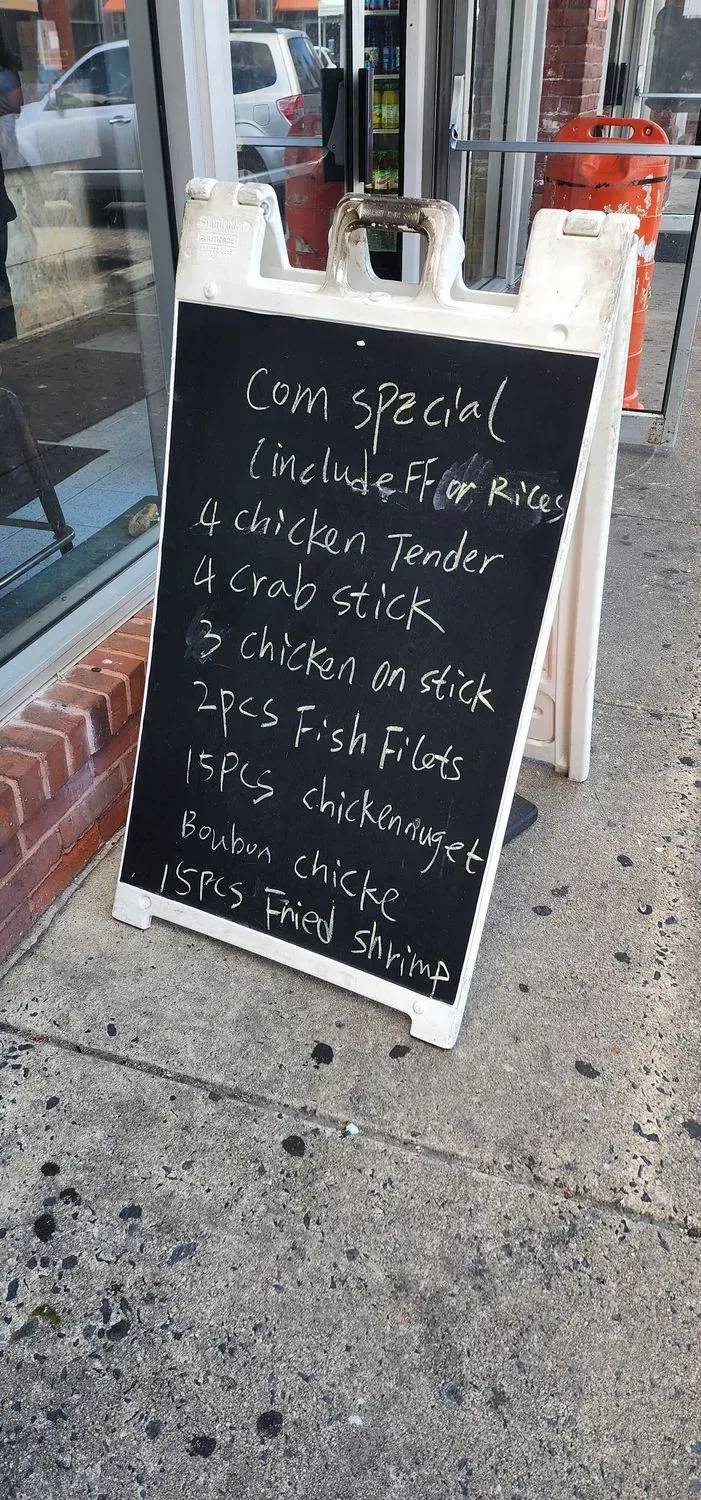 Signicade
Com special
(include FF or Rices
4 chicken Tender
4 crab stick
3 chicken on stick
2pcs Fish Filets
15Pcs chickennuget
Boubon chicke
15Pcs Fried shrimp